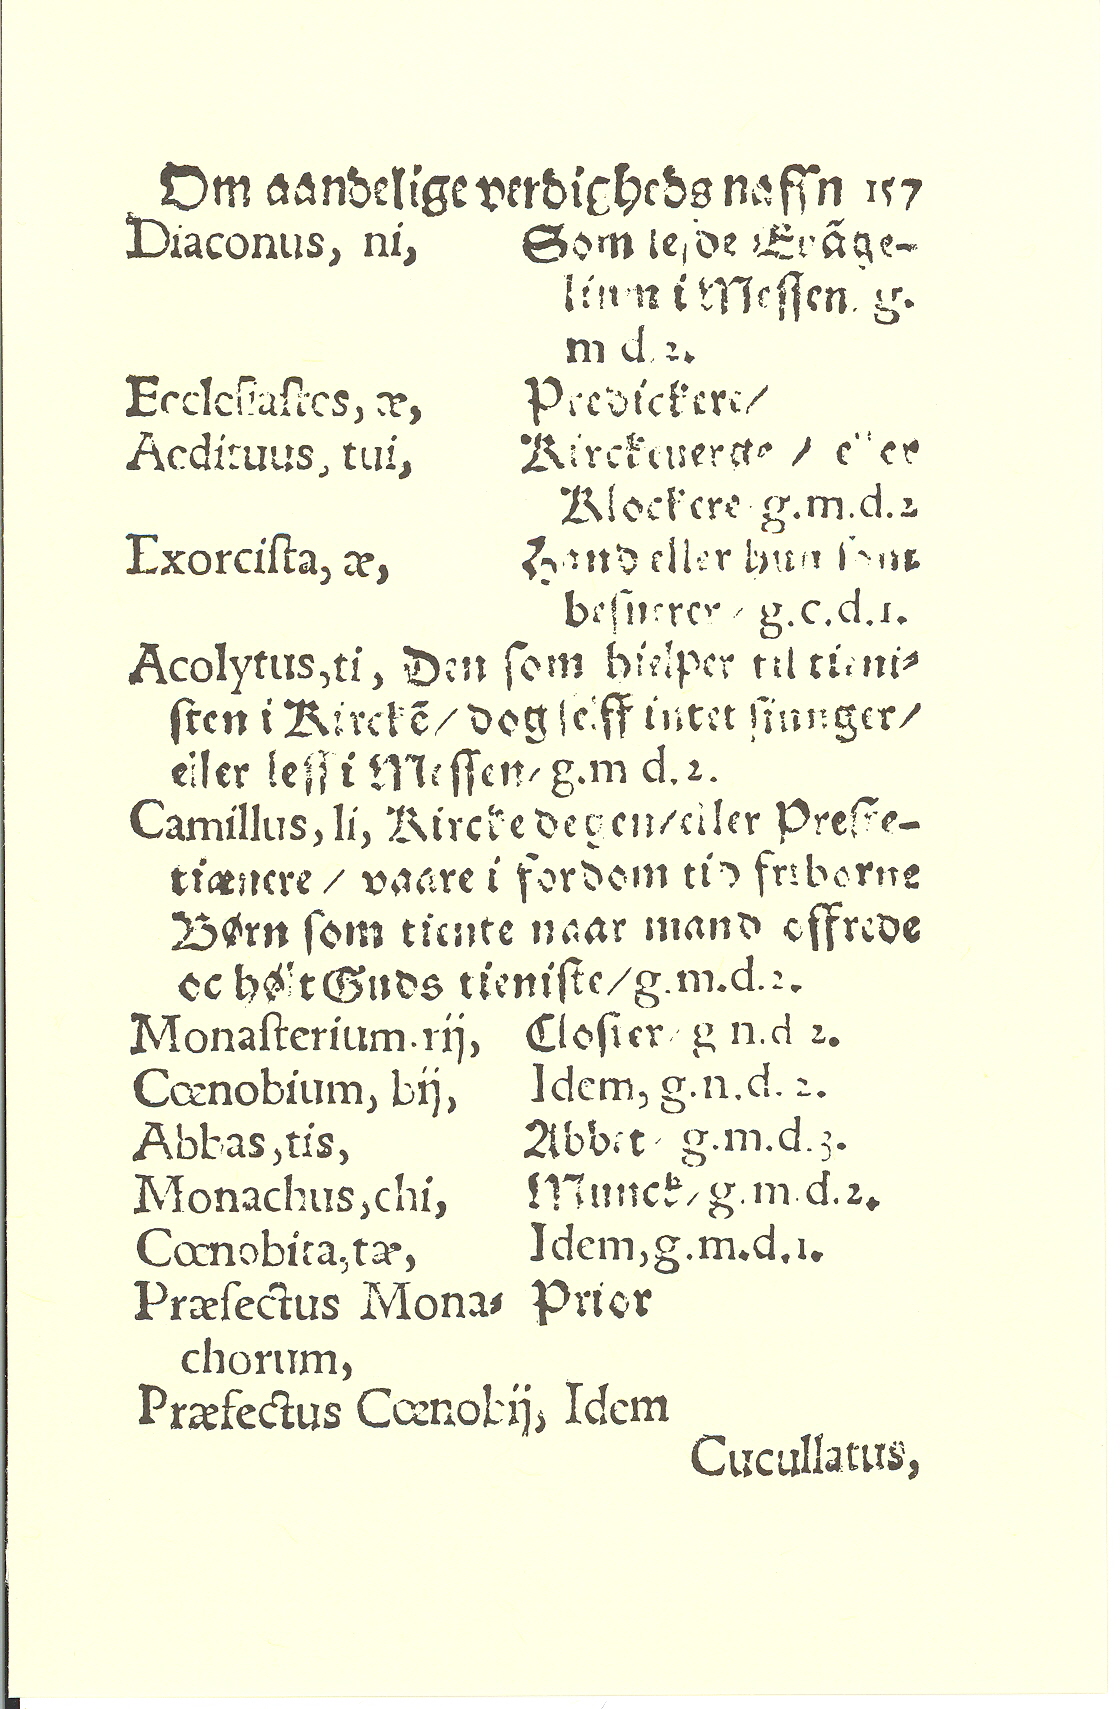 Om aandelige verdigheds naffn 157
Diaconus, ni, Som leſde Evãge-
lium i Meſſen. g.
m d. 2.
Eccleſiaſtes, æ, Predickere/
Aedituus, tui, Kirckeuerge / eller
Klockere g.m.d.2
Exorciſta, æ, Hand eller hun ſom
beſuerer / g.c.d.1.
Acolytus,ti, Den ſom hielper til tieni-
ſten i Kirckẽ/ dog ſelff intet ſiunger/
eller leſſ i Meſſen/ g.m d.2.
Camillus, li, Kircke degen/eller Preſte-
tiænere / vaare i fordom tid friborne
Børn ſom tiente naar mand offrede
oc høłt Guds tieniſte/g.m.d.2.
Monaſterium.rij, Cloſter/ g n.d 2.
Cœnobium, bij, Idem, g.n.d. 2.
Abbas,tis, Abbet/ g.m.d.3.
Monachus,chi, Munck/g.m.d.2.
Cœnobita,tæ, Idem,g.m.d.1.
Præfectus Mona- Prior
chorum,
Præfectus Cœnobij, Idem
Cucullatus,